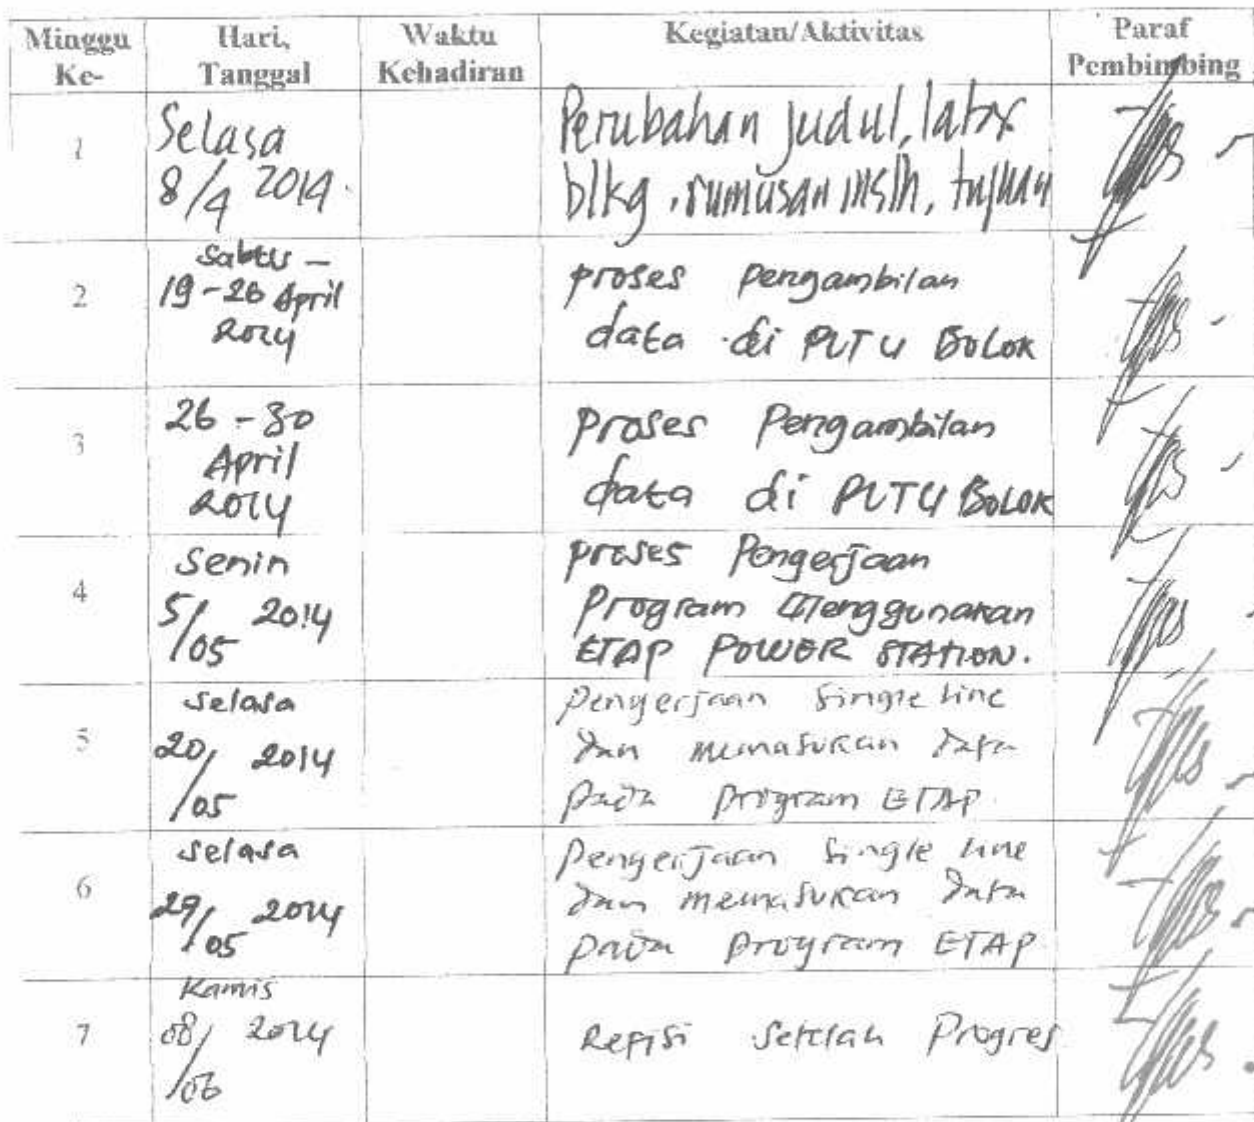 Minggu Ke- | Hari, Tanggal | Waktu Kehadiran | Kegiatan/Aktivitas | Paraf Pembimbing
1
Selasa
8/4 2014
Perubahan judul, latar
blkg, rumusan mslh, tujuan
2
Sabtu -
19 - 26 April
2014
proses pengambilan
data di PLTU BOLOK
3
26 - 30
April
2014
Proses Pengambilan
data di PLTU BOLOK
4
Senin
5/05 2014
proses Pengerjaan
Program Menggunakan
ETAP POWER STATION.
5
Selasa
20/05 2014
Pengerjaan Single line
dan memasukan data
pada program ETAP
6
Selasa
29/05 2014
Pengerjaan Single line
dan memasukan data
pada program ETAP
7
Kamis
08/06 2014
Refisi Setelah Progres